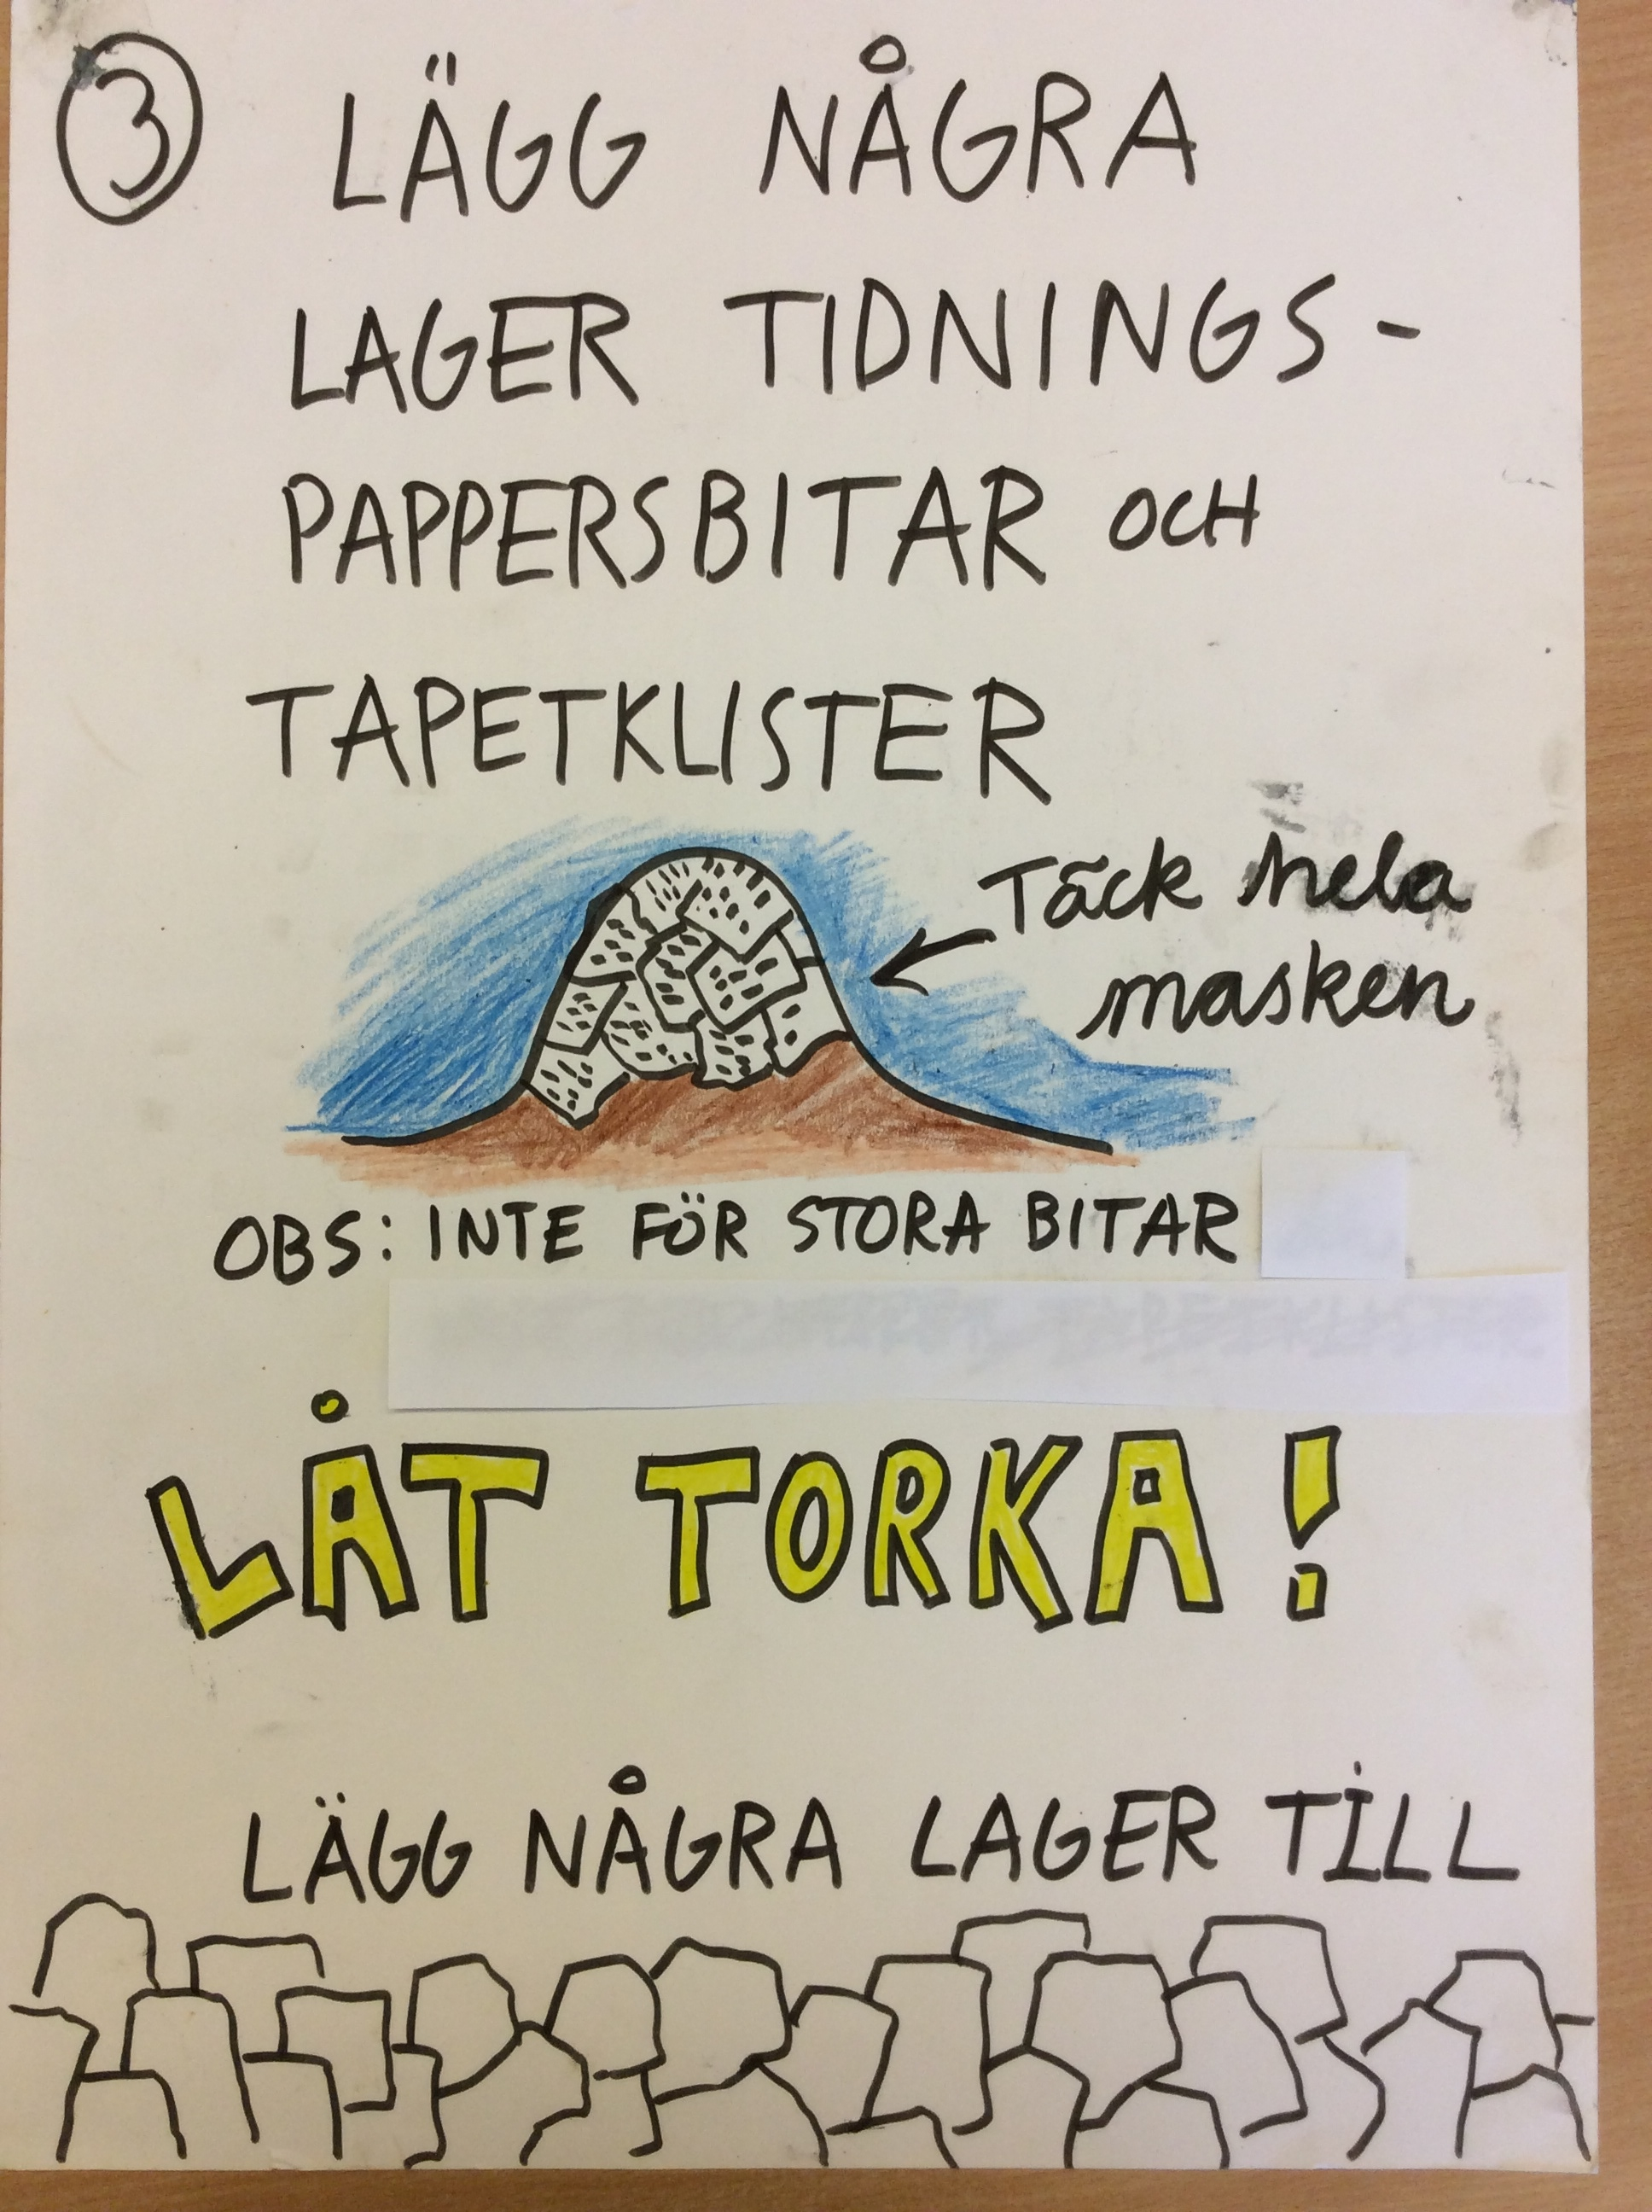 3 LÄGG NÅGRA
LAGER TIDNINGS-
PAPPERSBITAR OCH
TAPETKLISTER
Täck hela
masken
OBS: INTE FÖR STORA BITAR
LÅT TORKA!
LÄGG NÅGRA LAGER TILL